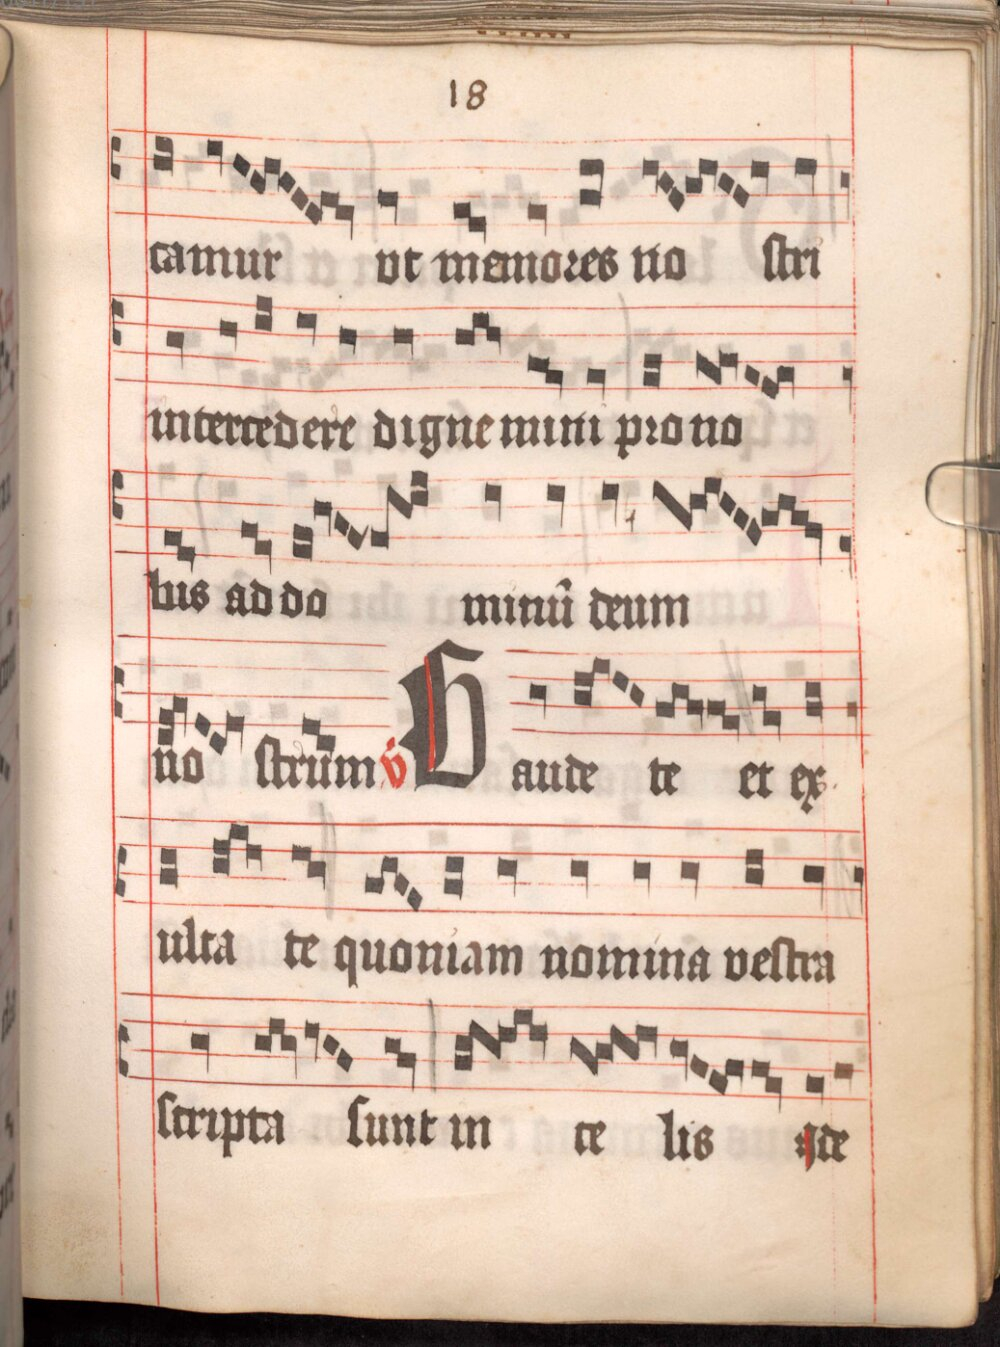 18
camur vt memores no stri
intercedere digne mini pro no
bis ad do minū deum
no strum v Gaude te et ex
ulta te quoniam nomina vestra
scripta sunt in ce lis